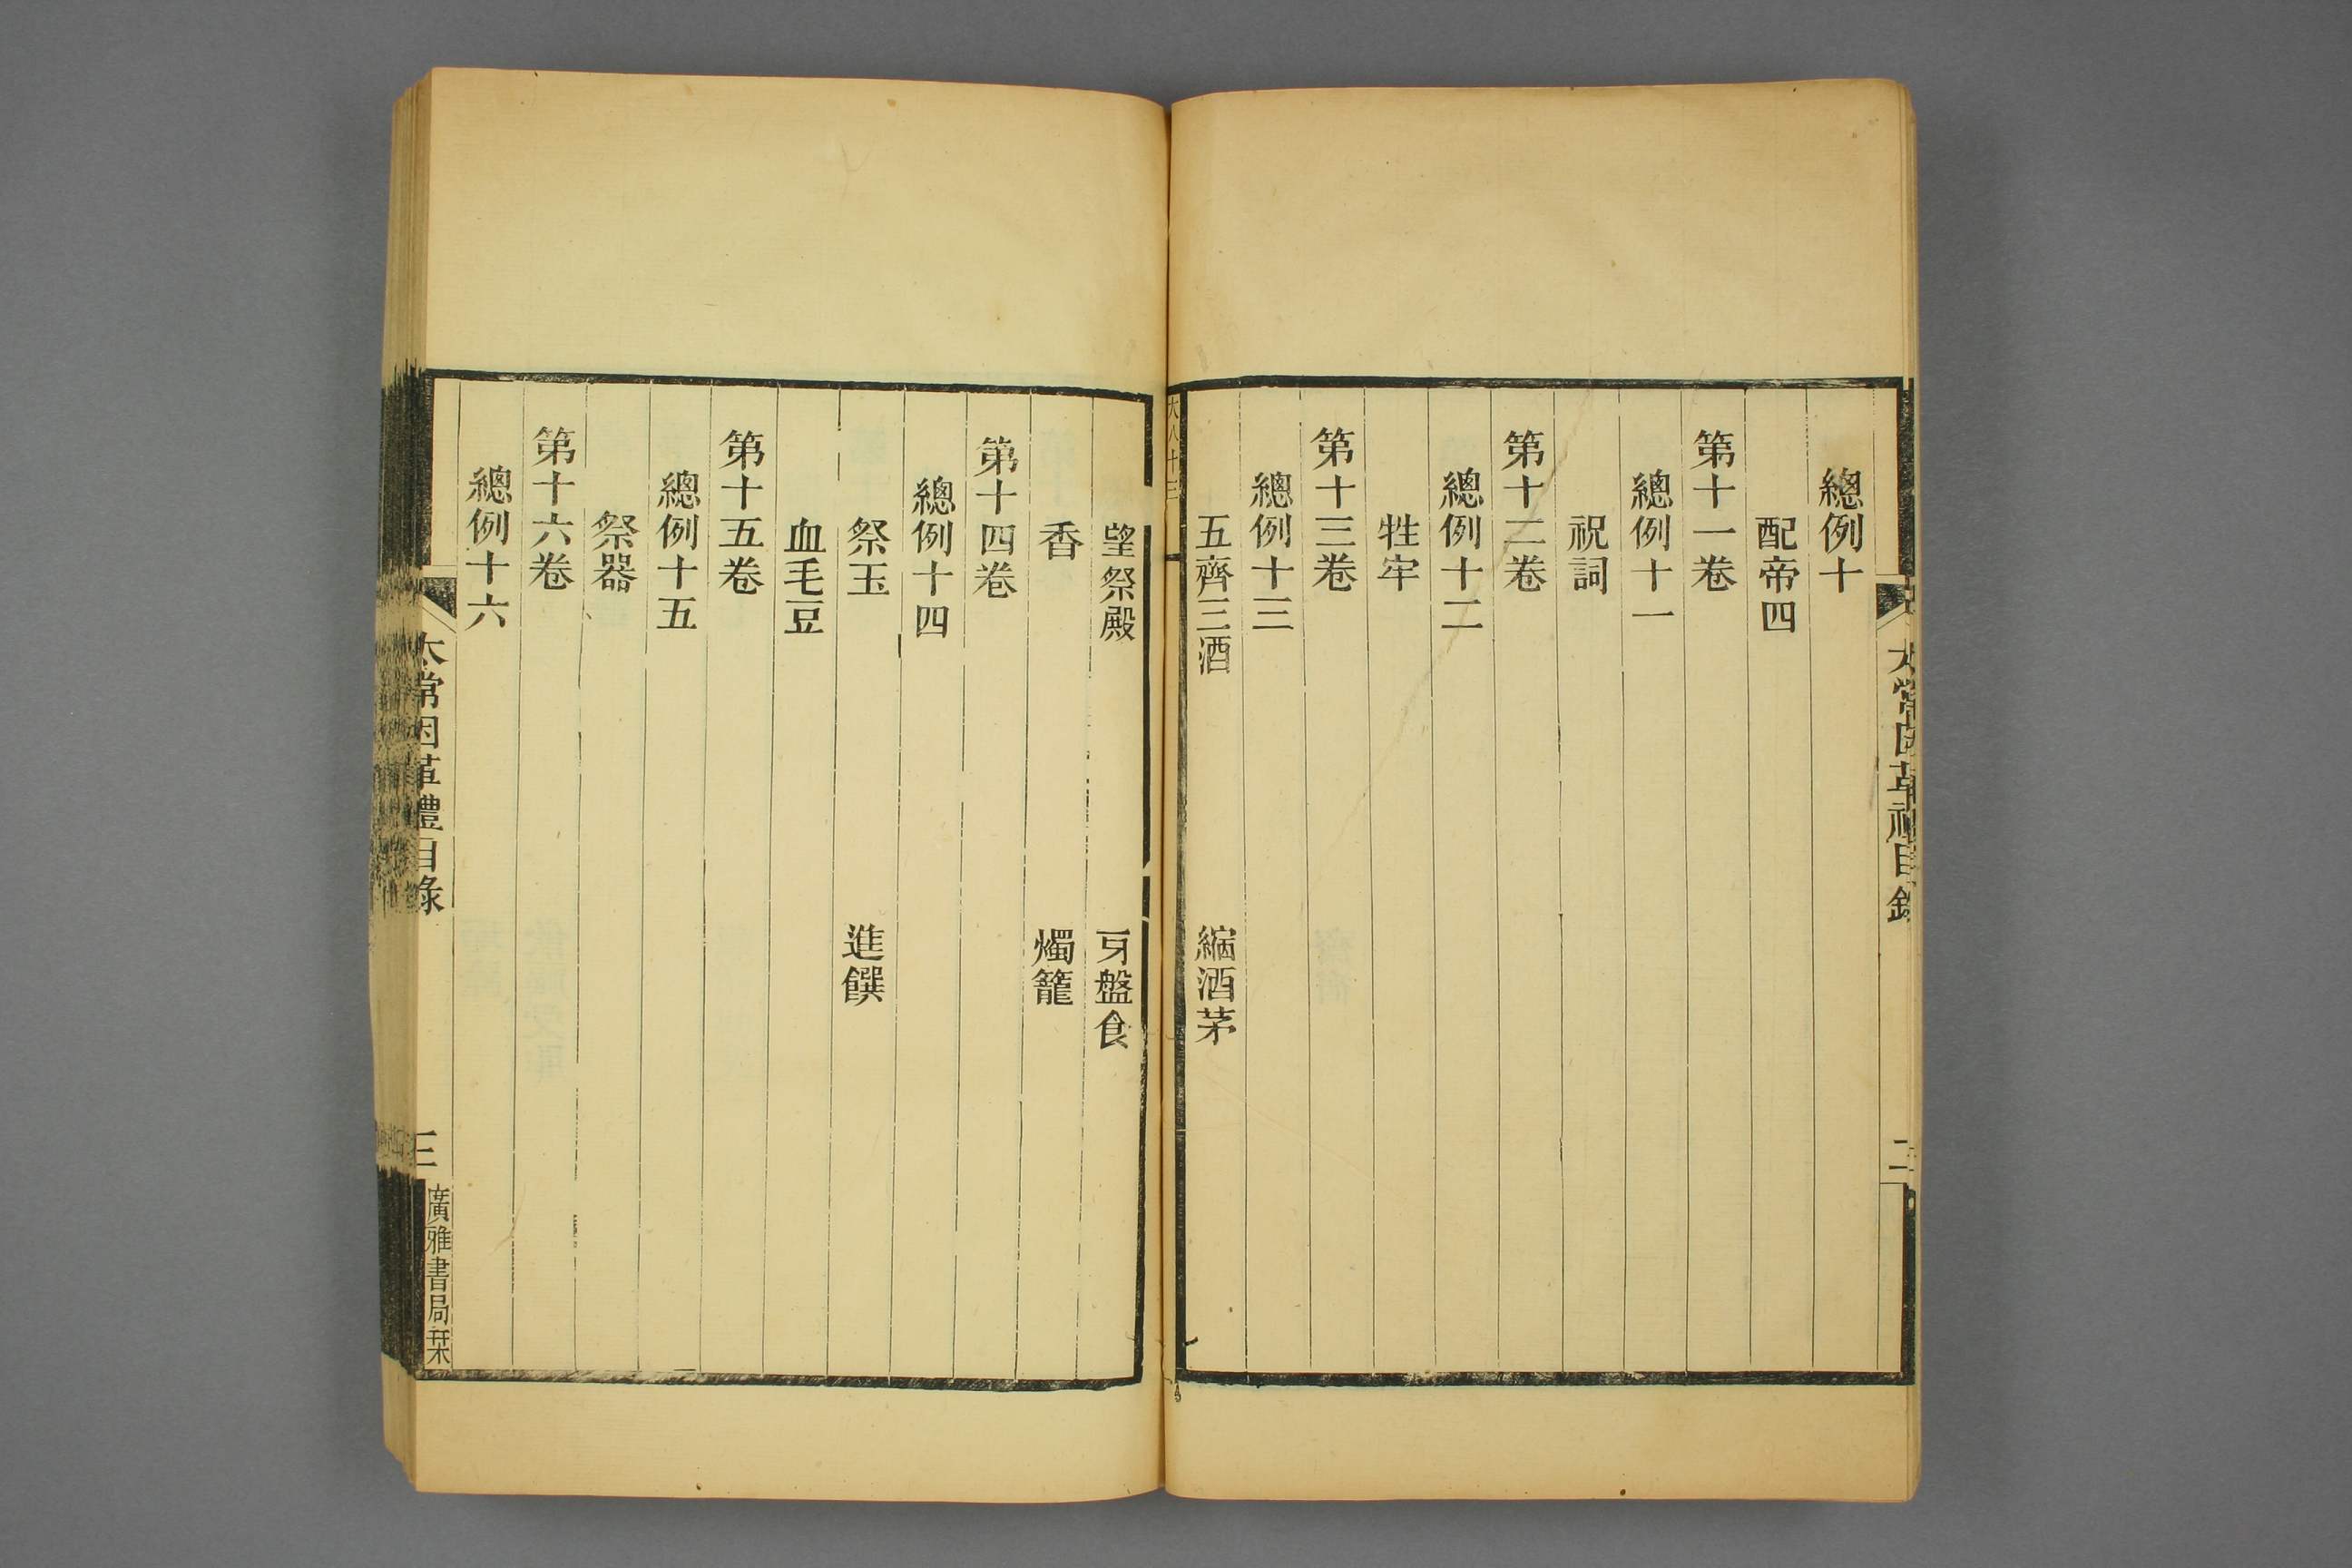 太常因革禮目錄
二
總例十
配帝四
第十一卷
總例十一
祝詞
第十二卷
總例十二
牲牢
第十三卷
總例十三
五齊三酒　縮酒茅
大八十三
望祭殿　牙盤食
香　燭籠
第十四卷
總例十四
祭玉　進饌
血毛豆
第十五卷
總例十五
祭器
第十六卷
總例十六
太常因革禮目錄
三
廣雅書局栞